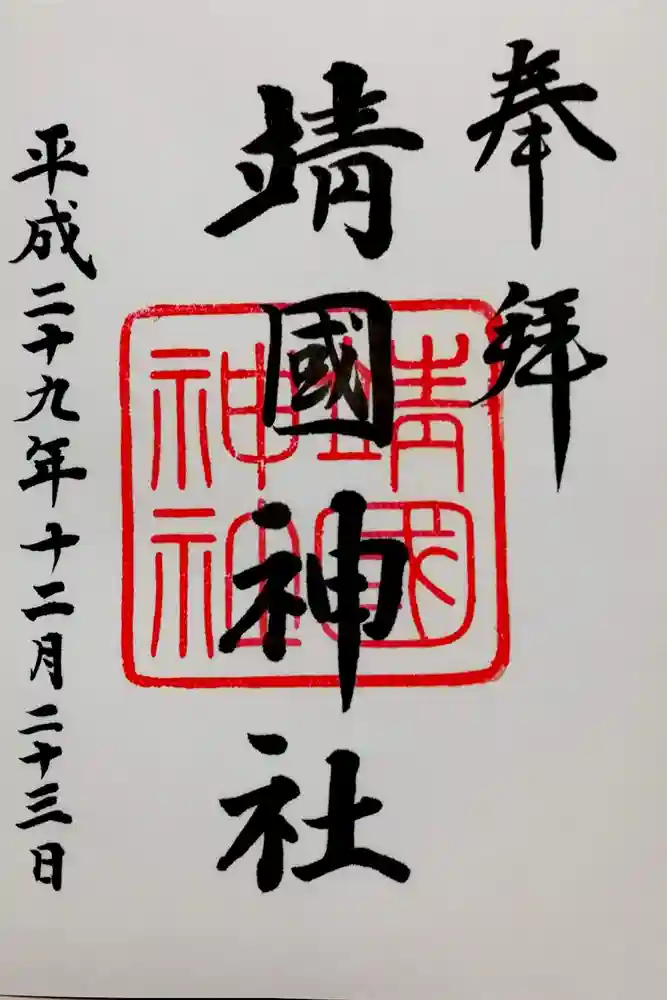 奉拜
靖國神社
靖國
神社
平成二十九年十二月二十三日